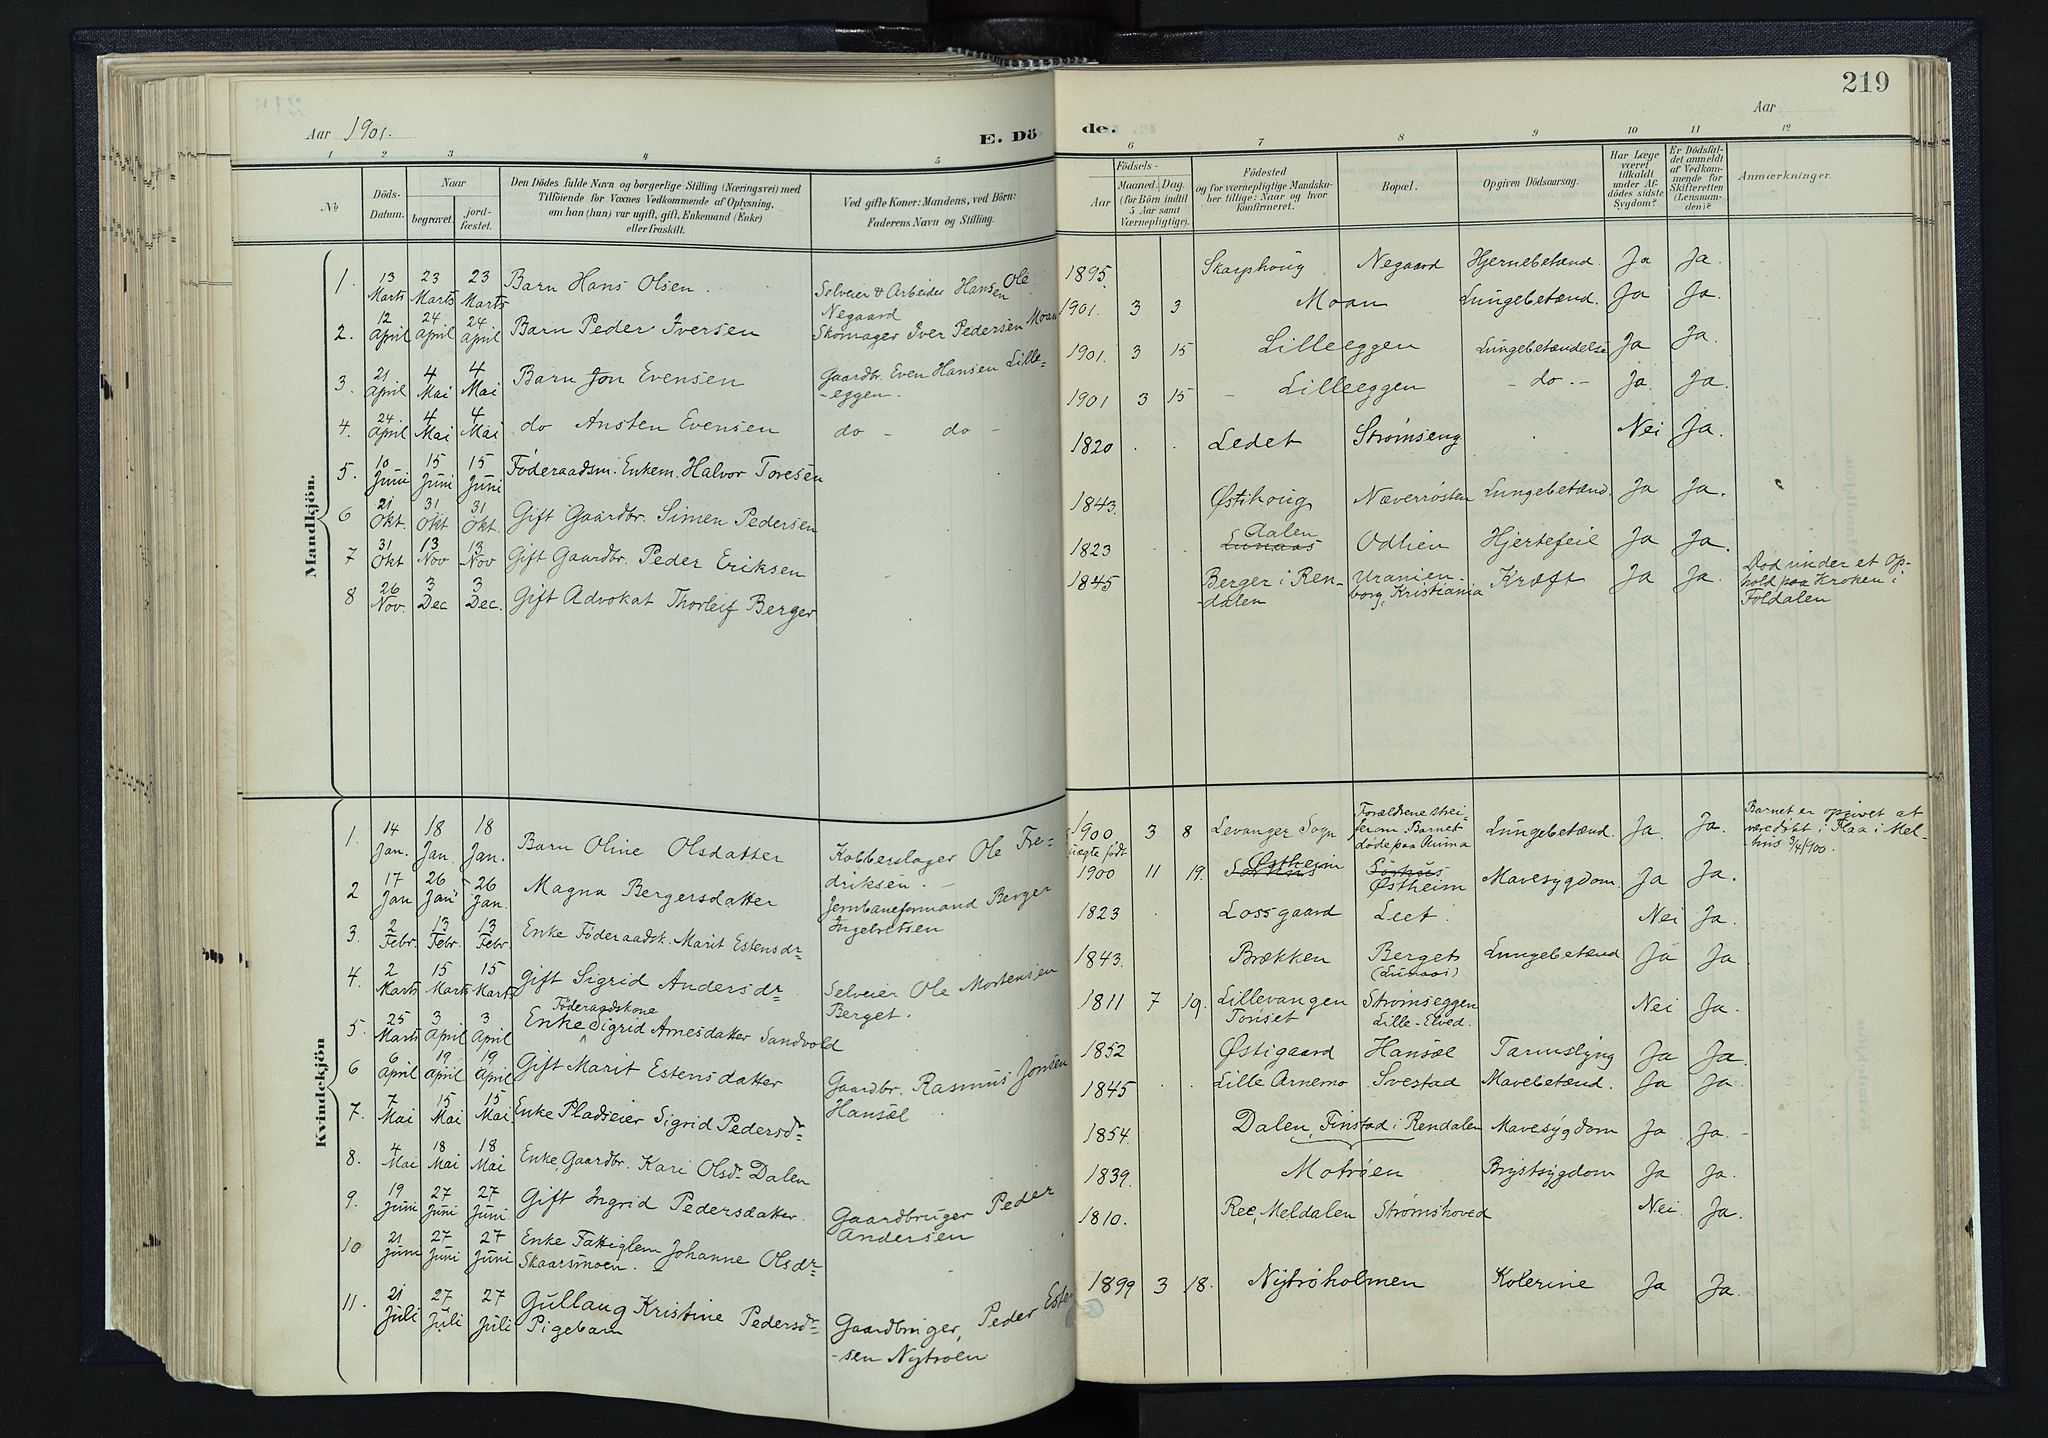 219
Aar 1901.
Aar
E. Dö
de.
1 2 3 4 5 6 7 8 9 10 11 12
№
Döds-Datum.
Naar
begravet.
jord-fæstet.
Den Dödes fulde Navn og borgerlige Stilling (Næringsvei) med
Tilföiende for Voxnes Vedkommende af Oplysning,
om han (hun) var ugift, gift, Enkemand (Enke)
eller fraskilt.
Ved gifte Koner: Mandens, ved Börn:
Faderens Navn og Stilling.
Födsels-
Aar
Maaned. Dag.
(for Börn indtil
5 Aar samt
Værnepligtige).
Födested
og for værnepligtige Mandska-
ber tillige: Naar og hvor
konfirmeret.
Bopæl.
Opgiven Dödsaarsag.
Har Læge
været
tilkaldt
under Af-
dödes sidste
Sygdom?
Er Dödsfal-
det anmeldt
af Vedkom-
mende for
Skifteretten
(Lensman-
den)?
Anmærkninger.
Mandkjön.
1. 13 Marts 23 Marts 23 Marts Barn Hans Olsen. Selveier & Arbeider Hansen Ole Negaard 1895. Skarphoug Negaard Hjernebetænd. Ja Ja.
2. 12 April 24 April 24 April Barn Peder Iversen Skomager Iver Pedersen Moan 1901. 3 3 Moan Lungebetænd. Ja Ja.
3. 21 April 4 Mai 4 Mai Barn Jon Evensen Gaardbr. Even Hansen Lille-
-eggen. 1901. 3 15 Lilleeggen Lungebetændelse Ja Ja.
4. 24 April 4 Mai 4 Mai do Ansten Evensen do - do - 1901 3 15 - Lilleeggen - do - Ja. Ja.
5. 10 Juni 15 Juni 15 Juni Föderaadsm. Enkem. Halvor Toresen 1820 Ledet Strømseng Nei Ja.
6 21 Okt. 31 Okt 31 Okt. Gift Gaardbr. Simen Pedersen 1843. Østihoug Næverrøsten Lungebetænd. Ja Ja.
7 31 Okt 13 Nov 13 Nov Gift Gaardbr. Peder Eriksen 1823 Dalen Lunaas Odlien Hjertefeil Ja Ja.
8 26 Nov. 3 Dec 3 Dec. Gift Advokat Thorleif Berger 1845 Berger i Ren-
dalen Uranien-
borg, Kristiania Kræft Ja Ja. Død under et Op-
hold paa Kroken i
Foldalen
Kvindekjön
1. 14 Jan. 18 Jan. 18 Jan. Barn Oline Olsdatter Kobberslager Ole Fre-
driksen. 1900 uægte født 3 8 Levanger Sogn Forældrene strei-
fer om Barnet
døde paa Auma Lungebetænd. Ja. Ja. Barnet er opgivet at
være døbt i Flaa i Mel-
hus 3/4/100.
2 17 Jan 26 Jan 26 Jan. Magna Bergersdatter Jernbaneformand Berger
Ingebretsen 1900 11 19. Østheim Sørhus Sørhus Østheim Mavesygdom. Ja Ja.
3. 2 Febr 13 Febr. 13 Febr Enke Föderaadsk. Marit Estensdr 1823 Lossgaard Leet. Nei Ja.
4. 2 Marts 15 Marts 15 Marts Gift Sigrid Andersdr. Selveier Ole Mortensen
Berget. 1843. Brækken Berget
(Lunaas) Lungebetænd Ja Ja
5. 25 Marts 3 April 3 April Föderaadskone
Enke Sigrid Arnesdatter Sandvold 1811 7 19. Lillevangen
Tønset Strømseggen
Lille-Elved. Nei Ja.
6 6 April 19 April 19 April Gift Marit Estensdatter Gaardbr. Rasmus Jonsen
Hansæl 1852 Østigaard Hansæl Tarmslyng Ja Ja.
7. 7 Mai 15 Mai 15 Mai Enke Pladseier Sigrid Pedersdr 1845 Lille Arnemo Svestad Mavebetænd. Ja Ja.
8. 4 Mai 18 Mai 18 Mai Enke, Gaardbr. Kari Olsdr Dalen 1854. Dalen, Finstad i Rendalen Mavesygdom Ja Ja.
9. 19 Juni 27 Juni 27 Juni Gift Ingrid Pedersdatter. Gaardbruger Peder
Andersen 1839. Motrøen Brystsygdom Ja Ja.
10 21 Juni 27 Juni 27 Juni Enke Fattiglem Johanne Olsdr
Skaarsmoen. 1810. Ree, Meldalen Strømshoved Nei. Ja.
11. 21 Juli 27 Juli 27 Juli Gullaug Kristine Pedersdr
Pigebarn Gaardbruger, Peder Esten
-sen Nytrøen 1899 3 18. Nytrøholmen Kolerine Ja Ja.